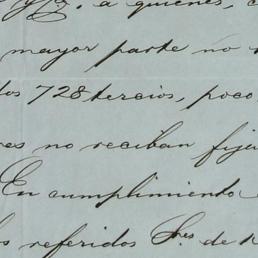 á quienes,
mayor parte no
los 728 tercios, poco
no reciban
En cumplimiento
referidos Sres. de